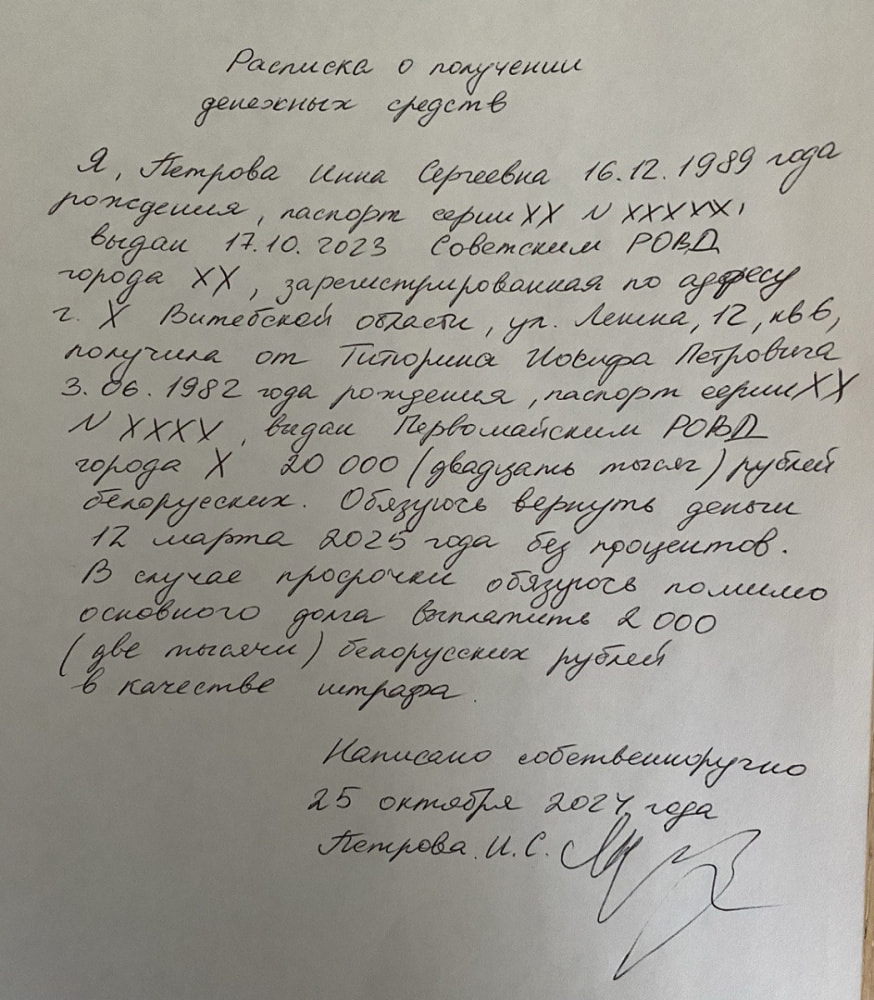 Расписка о получении
денежных средств
Я, Петрова Инна Сергеевна 16.12.1989 года
рождения, паспорт серии XX N XXXXX,
выдан 17.10.2023 Советским РОВД
города XX, зарегистрированная по адресу
г. X Витебской области, ул. Ленина, 12, кв 6,
получила от Титюрина Иосифа Петровича
3.06.1982 года рождения, паспорт серии XX
N XXXX, выдан Первомайским РОВД
города X 20 000 (двадцать тысяч) рублей
белорусских. Обязуюсь вернуть деньги
12 марта 2025 года без процентов.
В случае просрочки обязуюсь помимо
основного долга выплатить 2 000
(две тысячи) белорусских рублей
в качестве штрафа.
Написано собственноручно
25 октября 2024 года
Петрова. И. С.